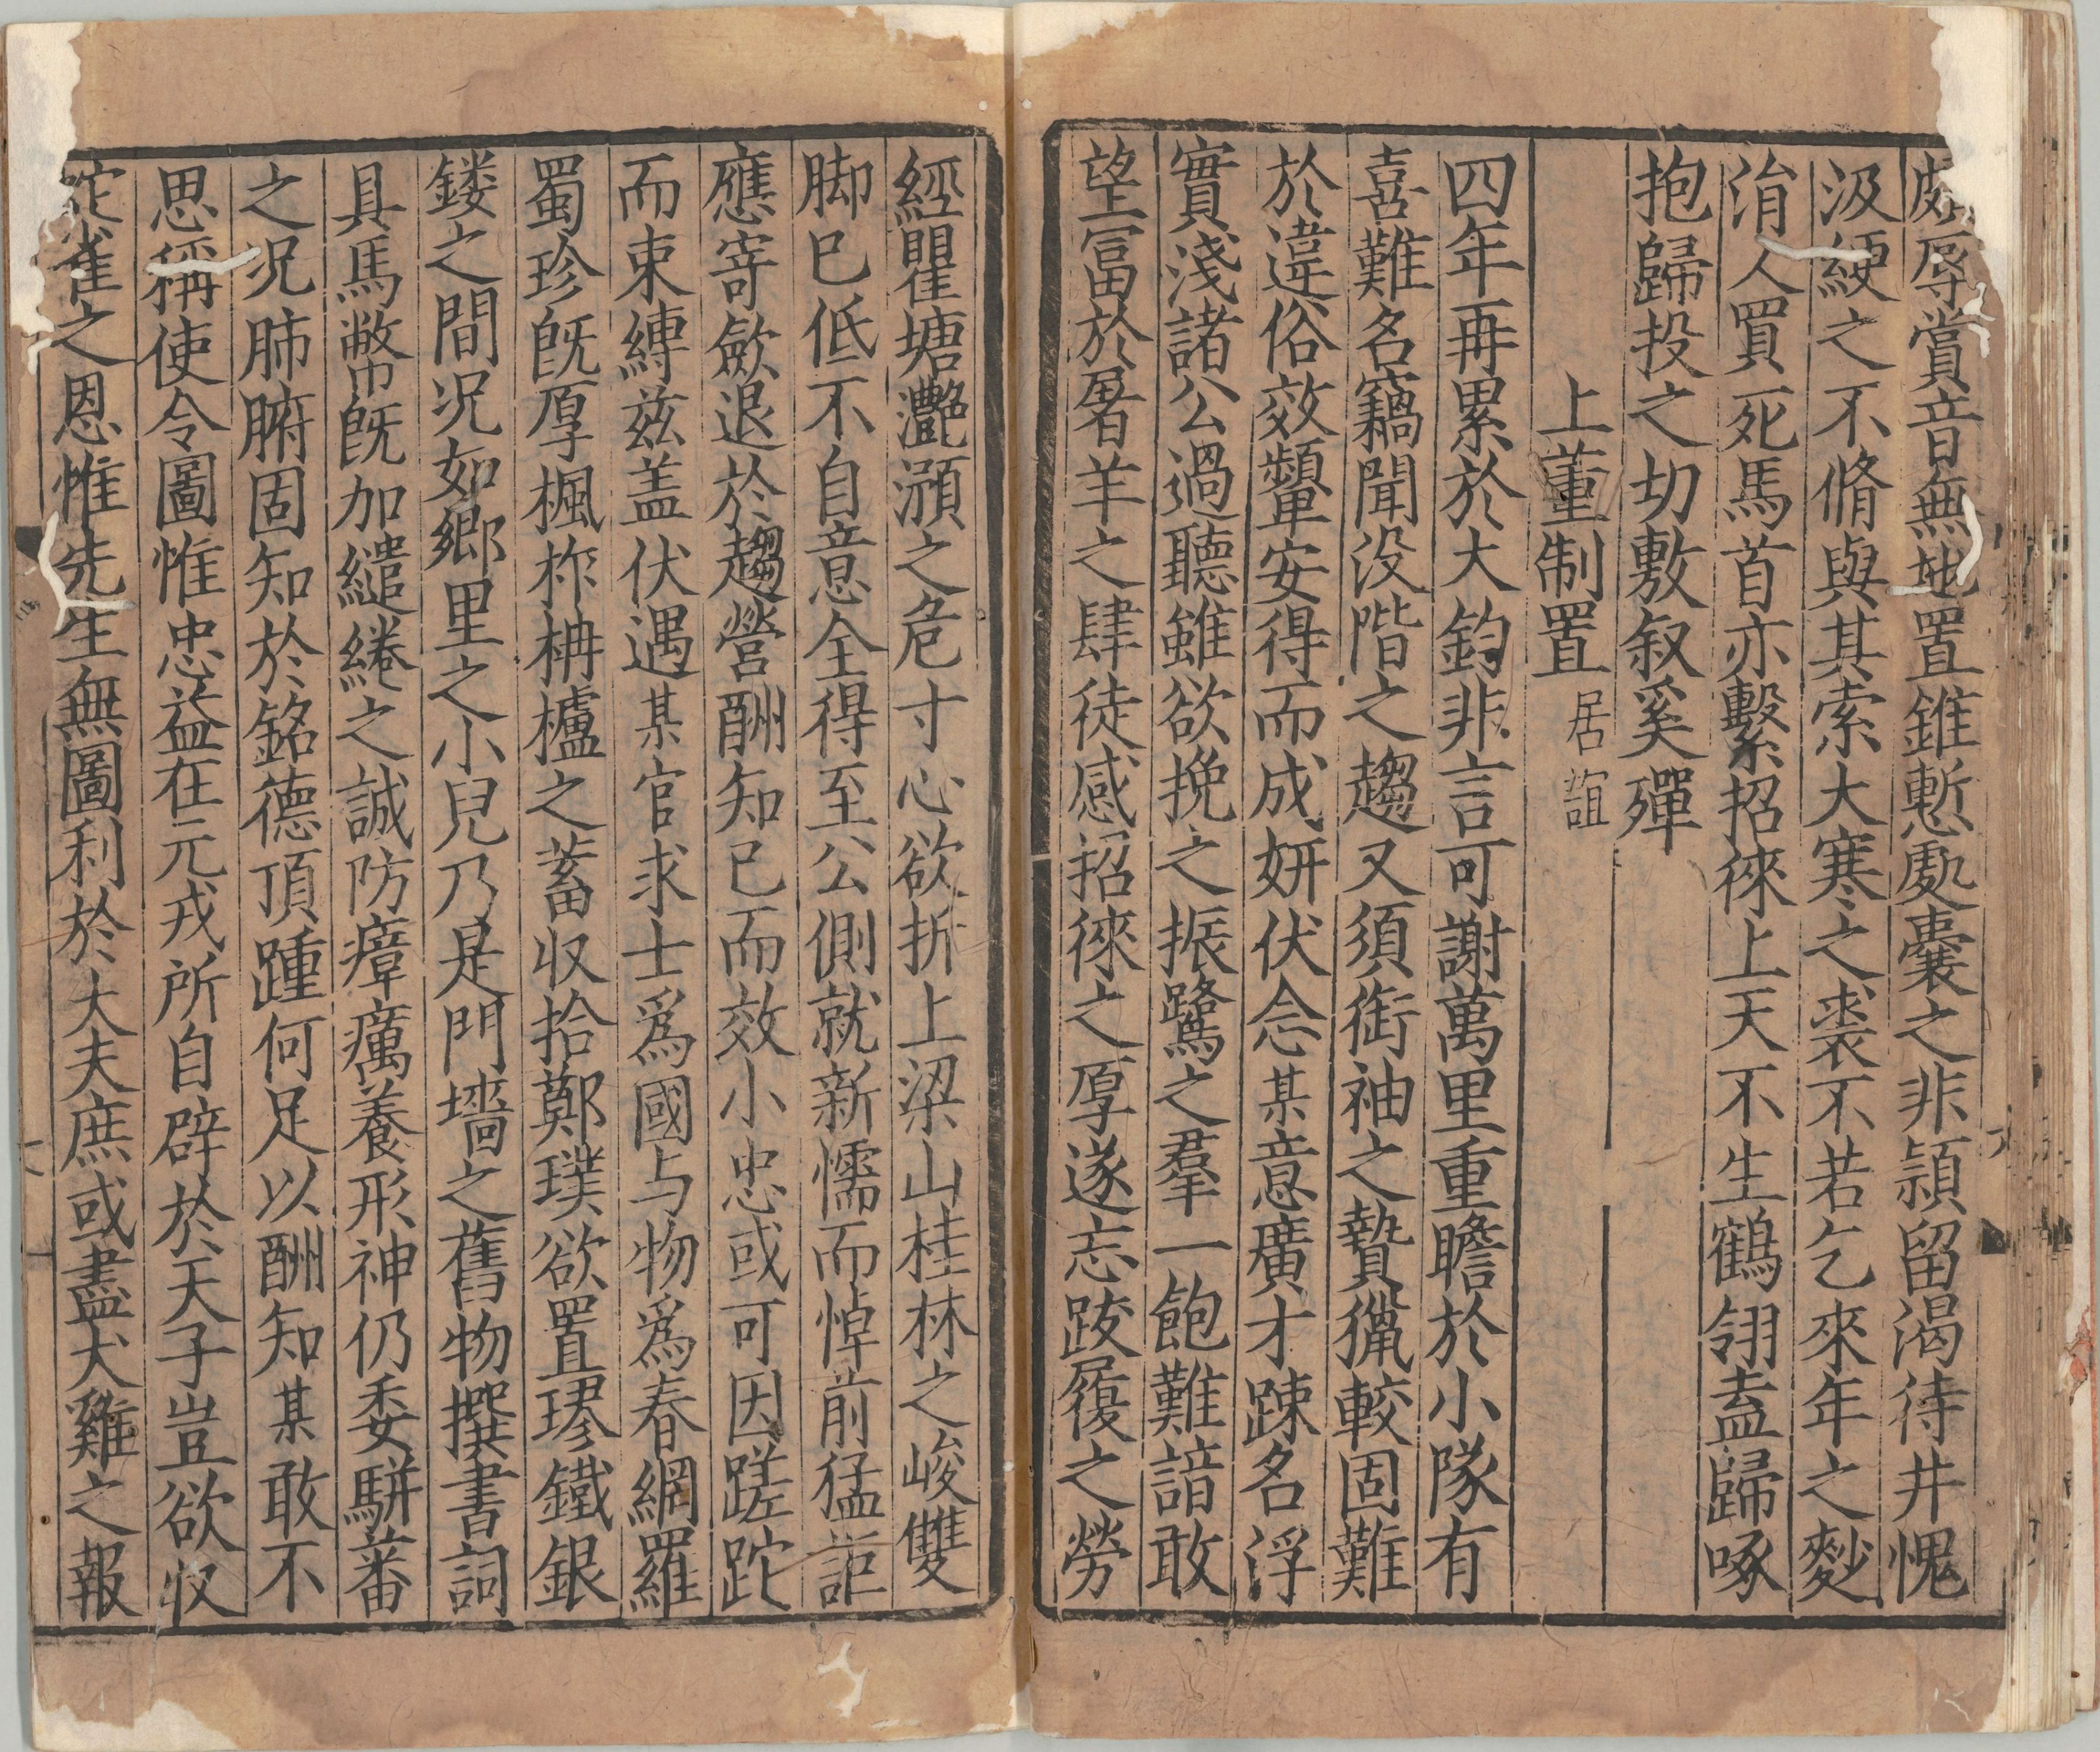 辱賞音無地置錐慙處囊之非頴留渴待井愧
汲綆之不脩與其索大寒之裘不若乞來年之麨
涓人買死馬首亦繫招徠上天不生鶴翎盍歸啄
抱歸投之切敷叙奚殫
上董制置居誼
四年再累於大鈞非言可謝萬里重瞻於小隊有
喜難名竊聞没階之趨又須銜袖之贄獵較固難
於違俗效顰安得而成妍伏念某意廣才踈名浮
實淺諸公過聽雖欲挽之振鷺之羣一飽難諳敢
望冨於屠羊之肆徒感招徠之厚遂忘跋履之勞
經瞿塘灧澦之危寸心欲折上梁山桂林之峻雙
脚已低不自意全得至公側就新懦而悼前猛詎
應寄歛退於趨營酬知已而效小忠或可因蹉跎
而束縛兹盖伏遇某官求士爲國与物爲春網羅
蜀珍旣厚楓柞柟櫨之蓄収拾鄭璞欲置璆鐵銀
鏤之間况如鄉里之小兒乃是門墻之舊物撰書詞
具馬幣旣加繾綣之誠防瘴癘養形神仍委駢蕃
之况肺腑固知於銘德頂踵何足以酬知某敢不
思稱使令圖惟忠益在元戎所自辟於天子豈欲収
雀之恩惟先生無圖利於大夫庶或盡犬雞之報